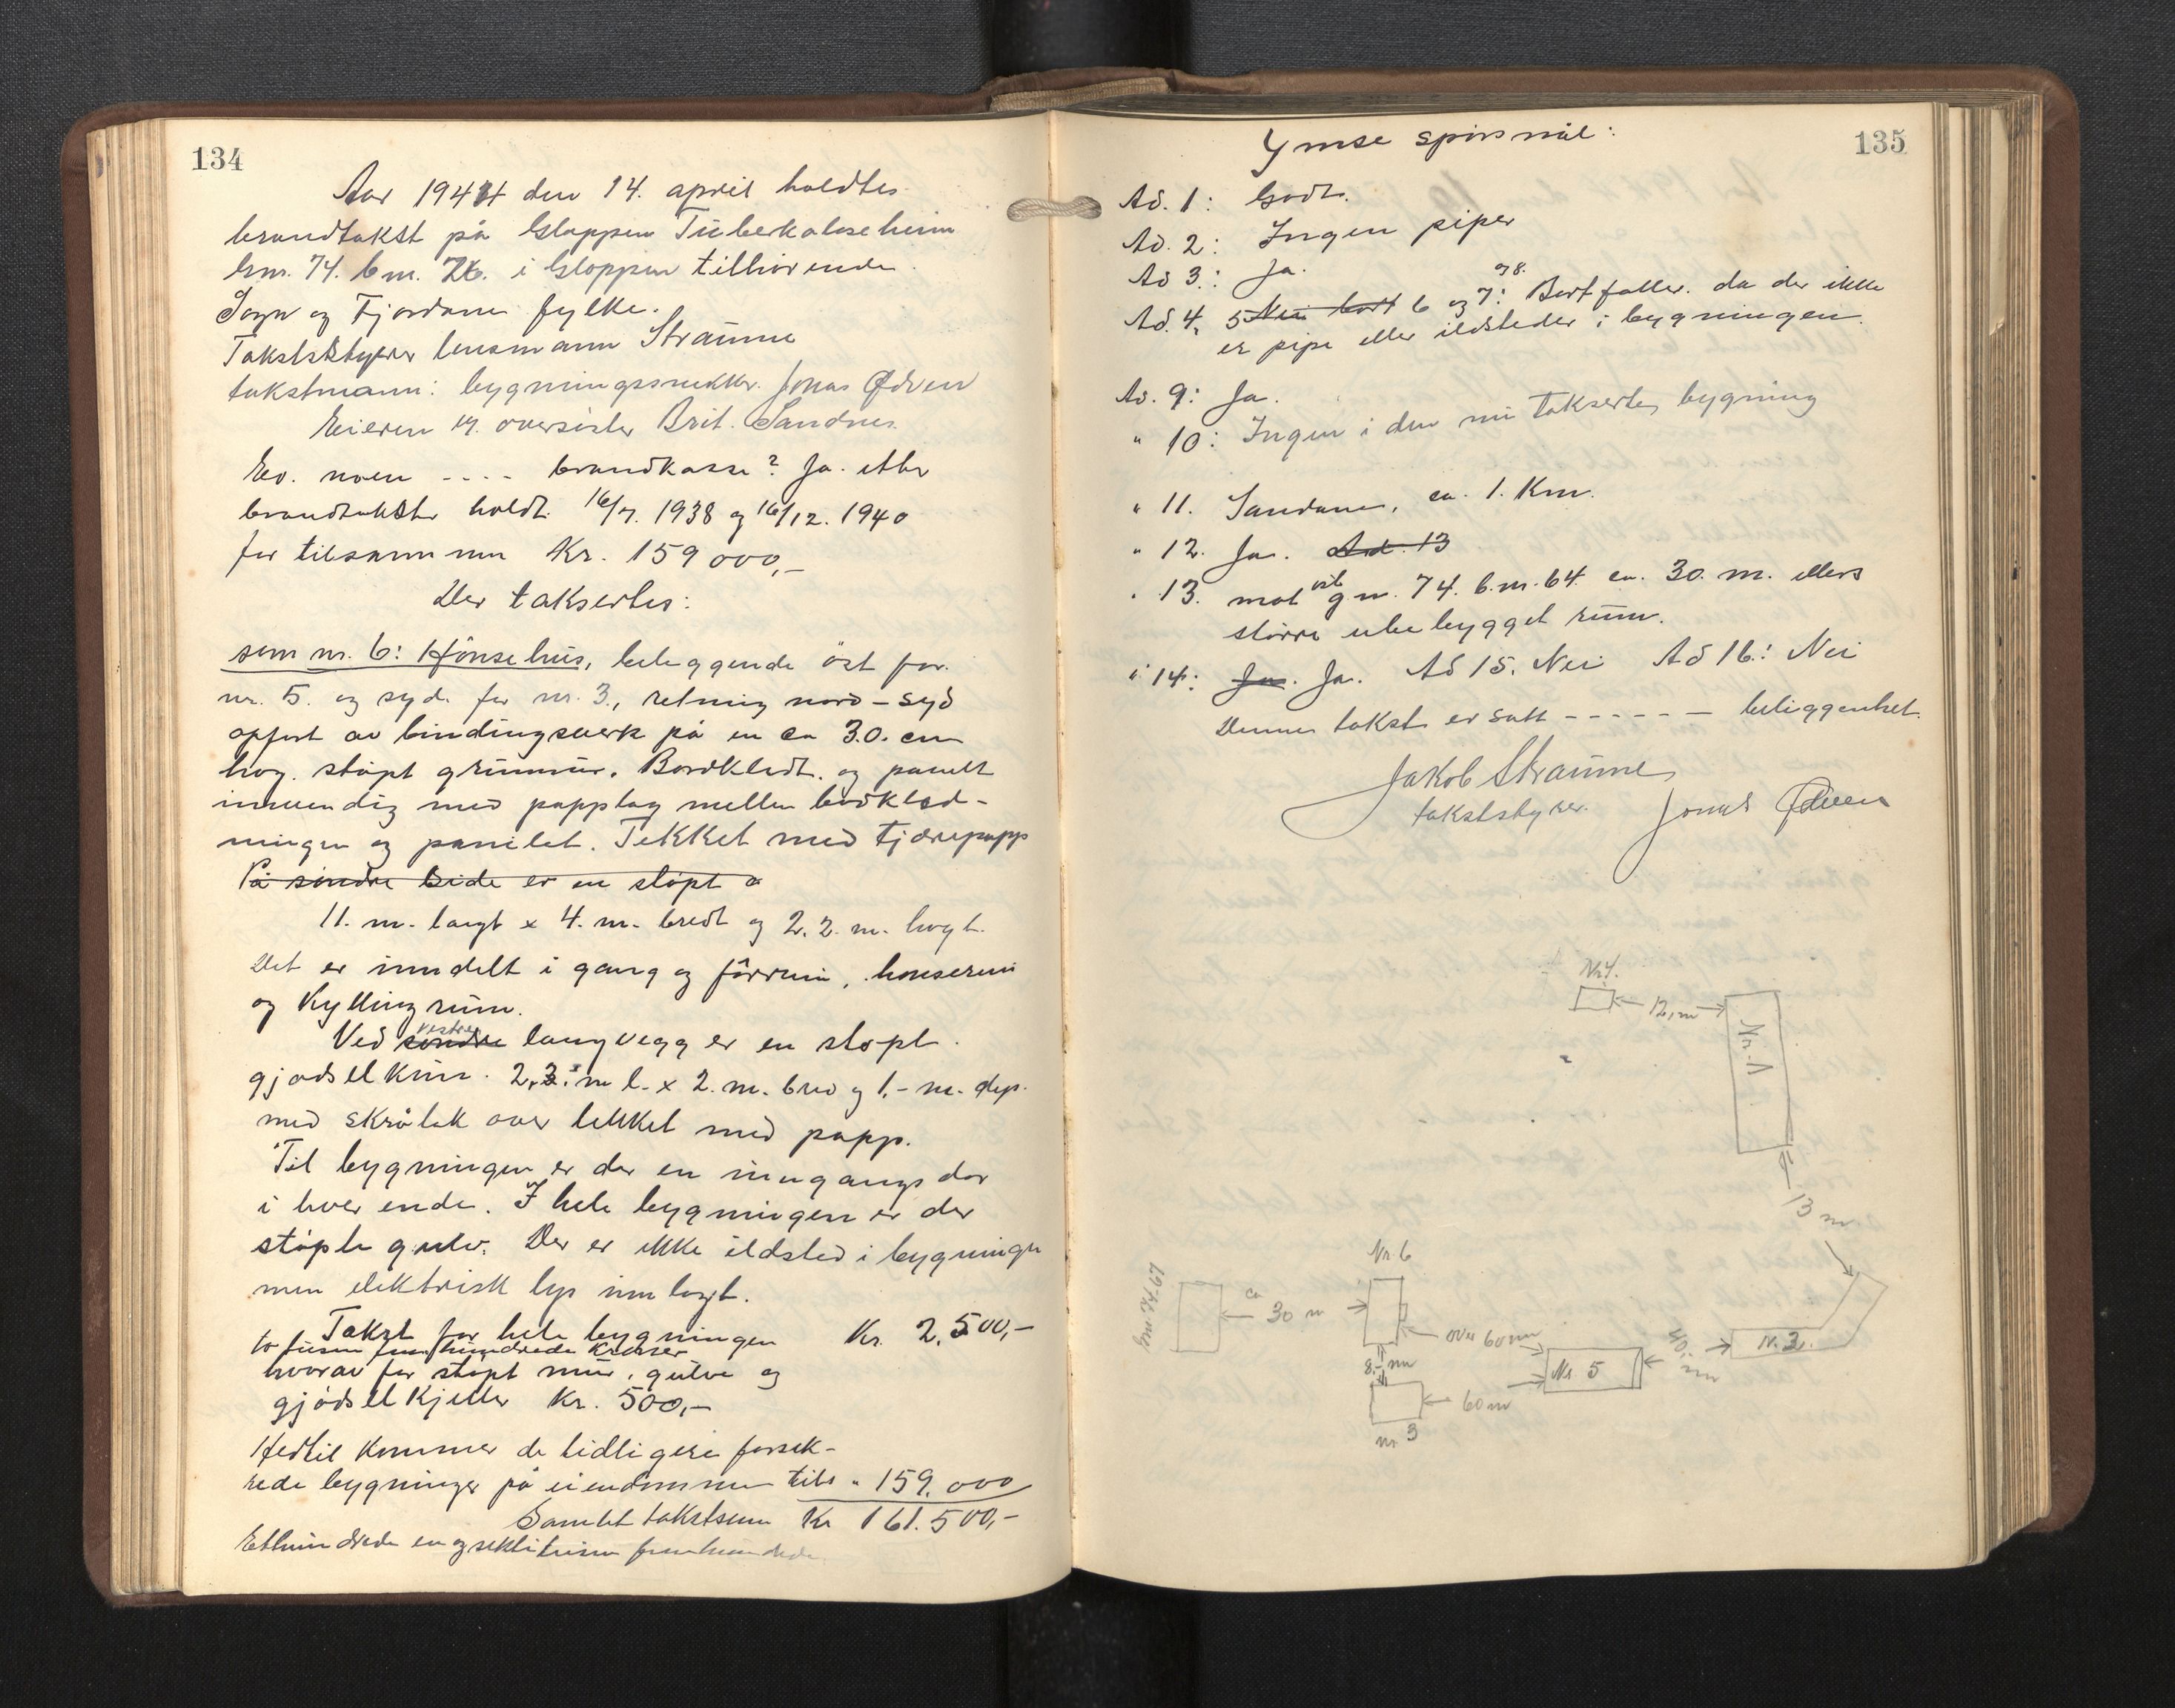 134
Aar 1944 den 14. april holdtes
brandtakst på Gloppen Tuberkuloseheim
Gnr. 74. bnr. 26. i Gloppen tilhörende
Sogn og Fjordane fylke.
Takststyrer lensmann Straume
takstmann: bygningssnekker. Jonas Ødven
Eieren v. oversöster Brit. Sandnes.
Ev. noen ---- brandkasse? Ja. etter
brandtakster holdt. 16/7. 1938 og 16/12. 1940
for tilsammen Kr. 159 000,-
Der taksertes:
som nr. 6: Hönsehus, beleggende öst for.
nr. 5. og syd. for nr. 3., retning nord - syd
opfört av bindingsverk på en ca 30. cm
høg. stöpt grunnmur. Bordkledt. og panelt
innvendig med papplag mellem bordkled-
ningen og panelet. Tekket med tjærepapp
På söndre side er en stöpt
11. m. langt x 4. m. bredt og 2.2. m. högt.
Det er inndelt i gang og fôrrum, hønserum
og Kyllingrum.
Ved söndre vestre langvegg er en stöpt
gjödselkum. 2,3. m l. x 2. m. bred og 1,- m. dyp.
med skråtak over tekket med papp.
Til bygningen er der en inngangs dør
i hver ende. I hele bygningen er der
stöpte gulv. Der er ikke ildsted i bygningen
men elektrisk lys innlagt.
Takst for hele bygningen Kr. 2.500,-
to tusen fem hundrede Kroner
hvorav for stöpt mur, gulve og
gjödselkjeller Kr. 500,-
Hertil kommer de tidligere forsik-
rede bygninger på eiendommen tils " 159.000
Samlet takstsum Kr 161.500,-
Etthundrede en og seksti tusen femhundrede
135
Ymse spörsmål:
Ad. 1: Godt.
Ad. 2: Ingen piper
Ad 3.: Ja.
Ad. 4, 5 Nei bort 6 og 7: og 8. Bortfaller. da der ikke
er pipe eller ildsteder i bygningen.
Ad. 9: Ja.
" 10: Ingen i den nu takserte bygning
" 11. Sandane, ca. 1. Km.
" 12. Ja. Ad. 13
" 13. mot gnr. 74. b.nr. 64. ca. 30. m. ellers
större ubebygget rum.
" 14: Ja. Ja. Ad 15. Nei Ad 16.: Nei
Denne takst er satt ------ beliggenhet.
Jakob Straume
takststyrer. Jonas Ødven
Nr 4.
12,m
Nr. 1
13 m
Nr 6
bnr 74.67
ca
30 m
over 60 m
8,- m
Nr 5
40,- m
N. 2.
60 m
nr. 3